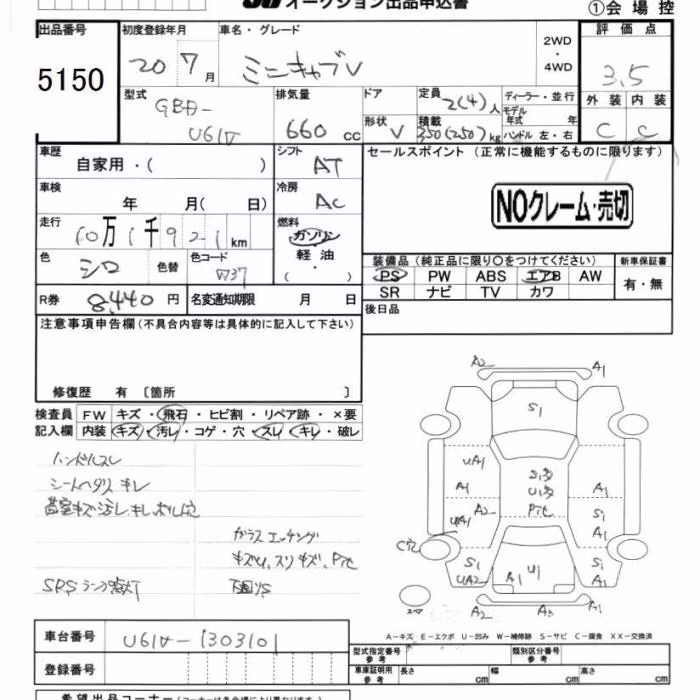 オークション出品申込書
①会場控
出品番号
5150
初度登録年月
20 7月
車名・グレード
ミニキャブV
2WD
・
4WD
評価点
3.5
外装 内装
C C
型式
GBD-
U61V
排気量
660cc
ドア
形状
V
定員
2(4)人
積載
350(250)kg
ディーラー・並行
モデル
年式 年
ハンドル 左・右
車歴
自家用・( )
シフト
AT
セールスポイント (正常に機能するものに限ります)
NOクレーム・売切
車検
年 月( 日)
冷房
AC
走行
10万1千921km
燃料
ガソリン
・
軽油
・
( )
色
シロ
色替
色コード
W37
装備品 (純正品に限り〇をつけてください)
PS PW ABS エアB AW
SR ナビ TV カワ
新車保証書
有・無
R券
8,440円
名変通知期限 月 日
後日品
注意事項申告欄(不具合内容等は具体的に記入して下さい)
修復歴 有 〔箇所 〕
検査員
記入欄
FW キズ・飛石・ヒビ割・リペア跡・×要
内装 キズ・汚レ・コゲ・穴・スレ・キレ・破レ
ハンドルスレ
シートヘタリスキレ
ガラスエッチング
SRSランプ点灯
下回りS
A2 A1
S1
UA1
A1
A2
UA1
C穴
S1
UA2
S1多
U1多
A1
S1
A1
S1
A1
A1 U1
A2 A3 A2
スペア
A-キズ E-エクボ U-凹み W-補修跡 S-サビ C-腐食 XX-交換済
車台番号
U61V-1303101
登録番号
型式指定番号
参考
類別区分番号
参考
車庫証明用
参考
長さ cm 幅 cm 高さ cm
希望出品コーナー